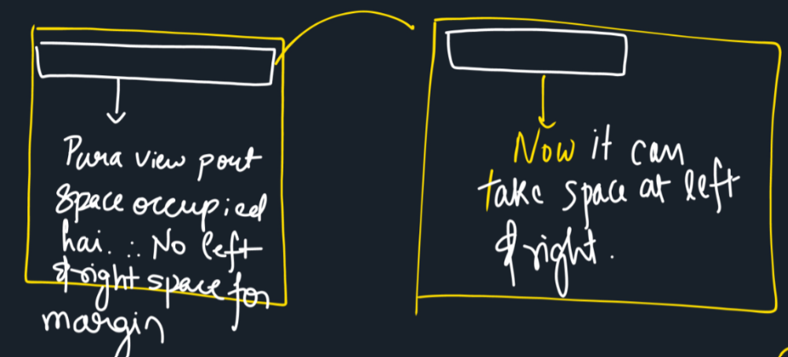 Pura view port
space occupied
hai. ∴ No left
& right space for
margin
Now it can
take space at left
& right.